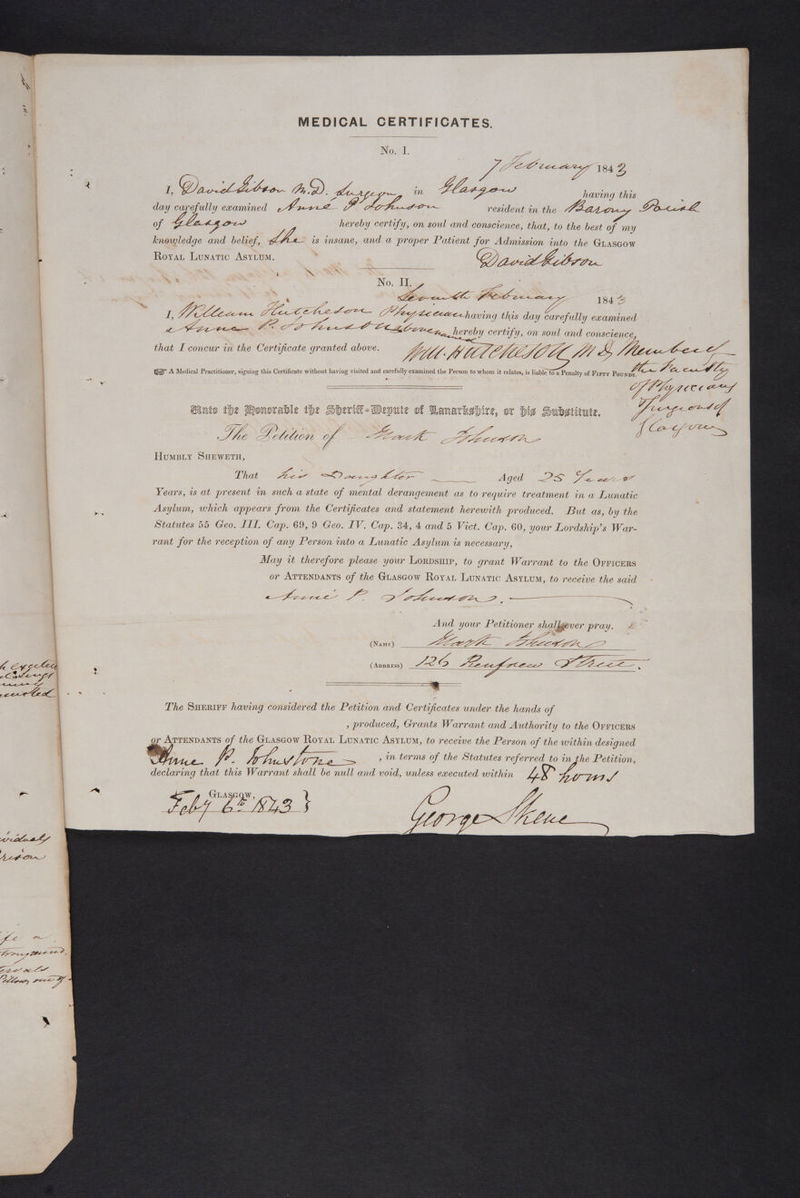 MEDICAL CERTIFICATES.
No. I.
7 February 1843
I, David Gibson M.D. Surgeon in Glasgow having this
day carefully examined Anne P Johnson resident in the Barony Parish
of Glasgow hereby certify, on soul and conscience, that, to the best of my
knowledge and belief, She is insane, and a proper Patient for Admission into the GLASGOW
ROYAL LUNATIC ASYLUM. David Gibson
No. II.
Seventh February 1843
I, William Hutcheson Physician having this day carefully examined
Anne P. Johnson hereby certify, on soul and conscience,
that I concur in the Certificate granted above. Will. Hutcheson M D, Member of
the Faculty
of Physicians
Surgeons of
Glasgow
A Medical Practitioner, signing this Certificate without having visited and carefully examined the Person to whom it relates, is liable to a Penalty of FIFTY POUNDS.
Unto the Honorable the Sheriff-Depute of Lanarkshire, or his Substitute.
The Petition of Mark Johnson
HUMBLY SHEWETH,
That his Daughter Aged 25 Years
Years, is at present in such a state of mental derangement as to require treatment in a Lunatic
Asylum, which appears from the Certificates and statement herewith produced. But as, by the
Statutes 55 Geo. III. Cap. 69, 9 Geo. IV. Cap. 34, 4 and 5 Vict. Cap. 60, your Lordship's War-
rant for the reception of any Person into a Lunatic Asylum is necessary,
May it therefore please your LORDSHIP, to grant Warrant to the OFFICERS
or ATTENDANTS of the GLASGOW ROYAL LUNATIC ASYLUM, to receive the said
Anne P. Johnson.
And your Petitioner shall ever pray.
(NAME) Mark Johnson
(ADDRESS) 126 Renfrew Street.
The SHERIFF having considered the Petition and Certificates under the hands of
, produced, Grants Warrant and Authority to the OFFICERS
or ATTENDANTS of the GLASGOW ROYAL LUNATIC ASYLUM, to receive the Person of the within designed
Anne P. Johnstone , in terms of the Statutes referred to in the Petition,
declaring that this Warrant shall be null and void, unless executed within 48 hours
GLASGOW,
Feby 6th 1843
George Skene